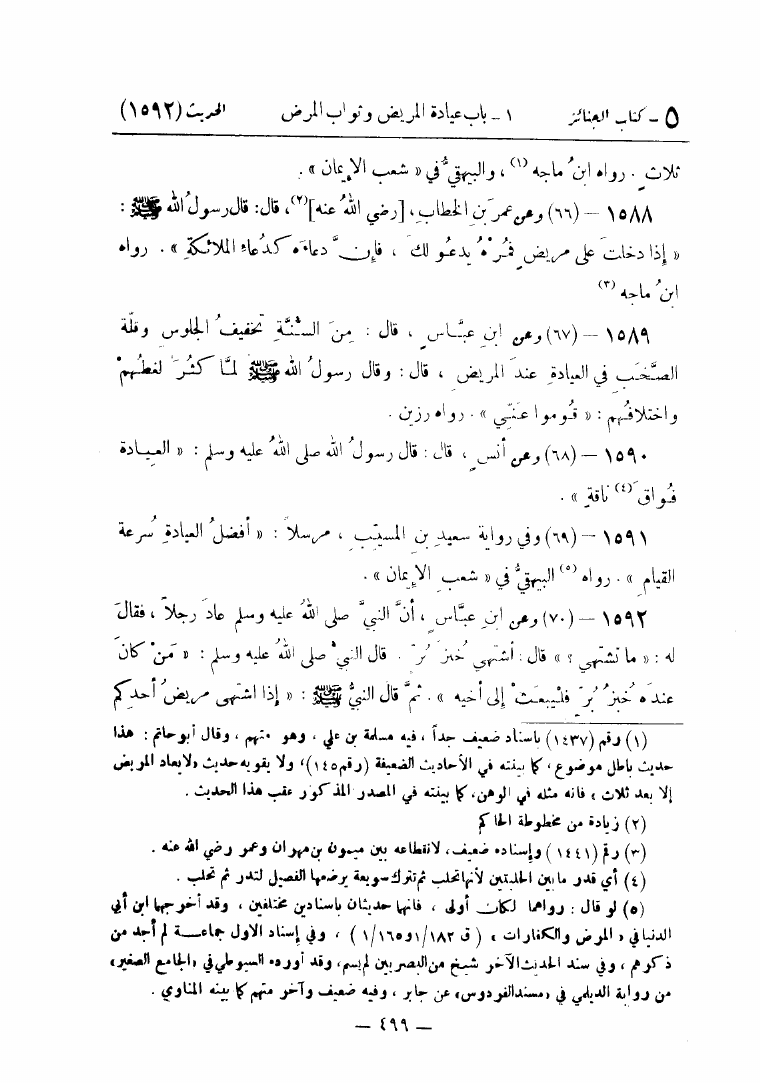 ٥ - كتاب الجنائز ١ - باب عيادة المريض وثواب المرض الحديث (١٥٩٢)
ثلاثٍ . رواه ابنُ ماجه (١) ، والبيهقيُّ في « شعب الإيمان » .
١٥٨٨ – (٦٦) وعن عمرَ بنِ الخطابِ، [رضي اللهُ عنه](٢)، قال: قال رسولُ الله ﷺ :
« إِذا دخلتَ على مريضٍ فمُرْهُ يدعُو لكَ ، فإِنَّ دعاءَه كدُعاءِ الملائكةِ » . رواه
ابنُ ماجه (٣)
١٥٨٩ – (٦٧) وعن ابنِ عبَّاسٍ ، قال : مِنَ السُّنَّةِ تخفيفُ الجلوسِ وقلَّة
الصَّخَبِ في العيادةِ عندَ المريضِ ، قال : وقال رسولُ الله ﷺ لمَّا كثُرَ لغطُهمْ
واختلافُهم : « قُوموا عَنِّي » . رواه رزين .
١٥٩٠ – (٦٨) وعن أنسٍ ، قال : قال رسولُ الله صلى اللهُ عليه وسلم : « العِيادة
فُواقَ (٤) ناقةٍ » .
١٥٩١ – (٦٩) وفي رواية سعيدِ بنِ المسيّبِ ، مرسلاً : « أفضلُ العيادةِ سُرعة
القيامِ » . رواه (٥) البيهقيُّ في « شعبِ الإيمان » .
١٥٩٢ – (٧٠) وعن ابنِ عبَّاسٍ ، أنَّ النبيَّ صلى اللهُ عليه وسلم عادَ رجلاً ، فقالَ
له : « ما تشتهي ؟ » قال : أشتهي خُبزَ بُرٍّ . قال النبيُّ صلى اللهُ عليه وسلم : « مَنْ كانَ
عندَه خُبزُ بُرٍّ فليبعثْ إلى أخيه » . ثمَّ قال النبيُّ ﷺ : « إذا اشتهى مريضُ أحدِكم
(١) رقم (١٤٣٧) باسناد ضعيف جداً ، فيه مسلمة بن علي ، وهو متهم ، وقال أبو حاتم : هذا
حديث باطل موضوع ، كما بينته في الأحاديث الضعيفة (رقم ١٤٥)، ولا يقويه حديث «لايعاد المريض
إلا بعد ثلاث » فانه مثله في الوهن، كما بينته في المصدر المذكور عقب هذا الحديث .
(٢) زيادة من مخطوطة الحاكم
(٣) رقم (١٤٤١) وإسناده ضعيف، لانقطاعه بين ميمون بن مهران وعمر رضي الله عنه .
(٤) أي قدر ما بين الحلبتين لأنها تحلب ثم تترك سويعة يرضعها الفصيل لتدر ثم تحلب .
(٥) لو قال : رواهما لكان أولى ، فانها حديثان باسنادين مختلفين ، وقد أخرجها ابن أبي
الدنيا في « المرض والكفارات » ( ق ١/١٨٢ و١/١٦٥ ) ، وفي إسناد الاول جماعة لم أجد من
ذكرهم ، وفي سند الحديث الآخر شيخ من البصريين لم يسم، وقد أورده السيوطي في «الجامع الصغير»
من رواية الديلمي في «مسند الفردوس» عن جابر ، وفيه ضعيف وآخر متهم كما بينه المناوي .
– ٤٩٩ –